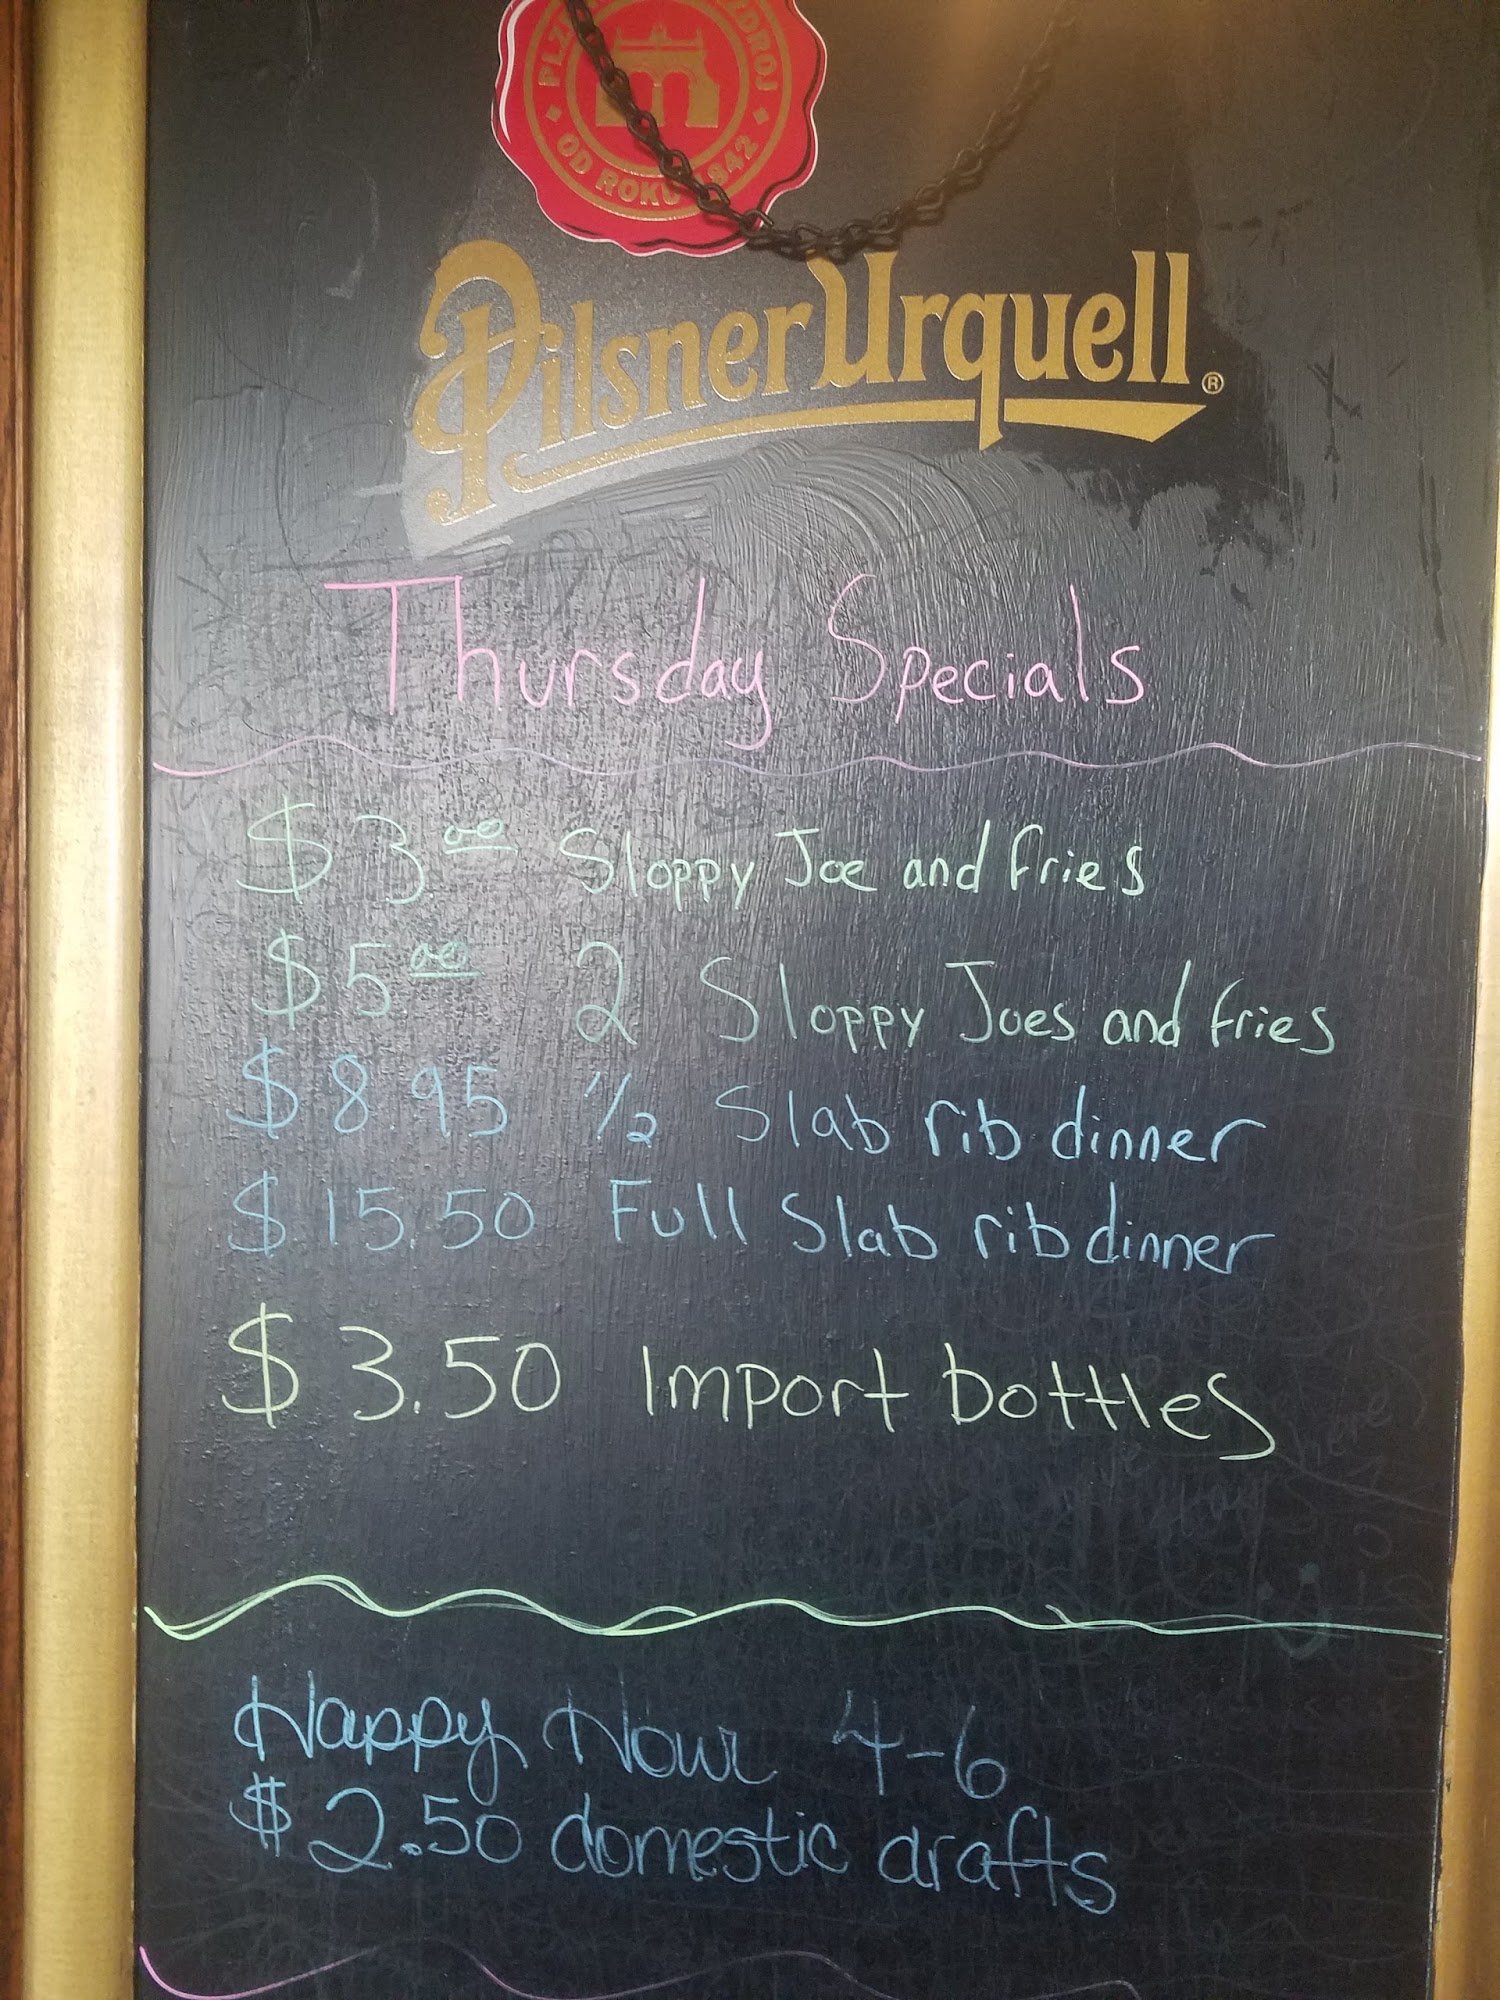 PLZ DROJ
OD ROKU 1842
Pilsner Urquell®
Thursday Specials
$3.00 Sloppy Joe and fries
$5.00 2 Sloppy Joes and fries
$8.95 1/2 Slab rib dinner
$15.50 Full Slab rib dinner
$3.50 Import bottles
Happy Hour 4-6
$2.50 domestic drafts